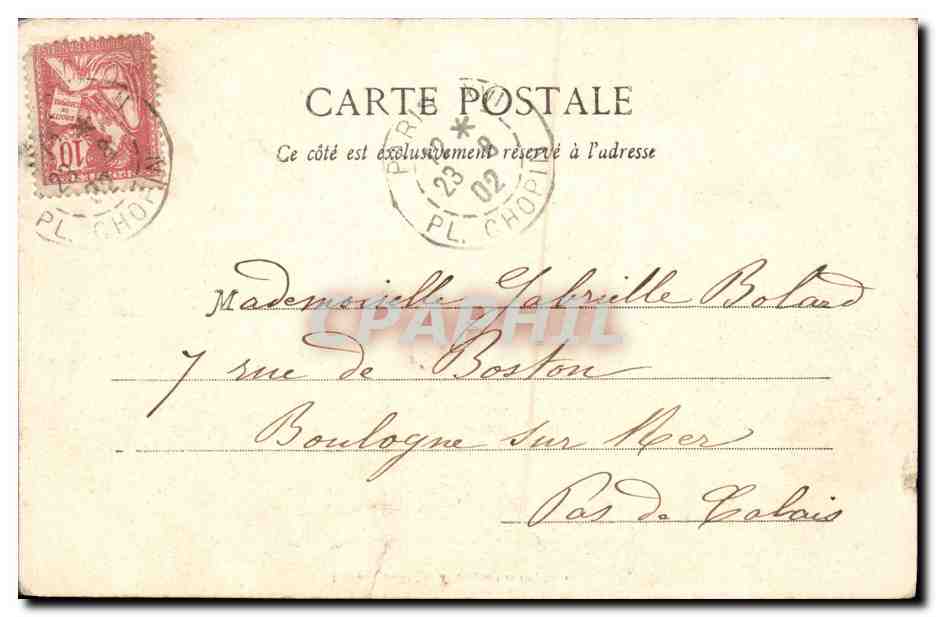 CARTE POSTALE
Ce côté est exclusivement réservé à l'adresse
PARIS
12 *
23 8
02
PL. CHOPIN
10
PL. CHOPIN
Mademoiselle Gabrielle Bolard
CPAPHIL
7 rue de Boston
Boulogne sur Mer
Pas de Calais